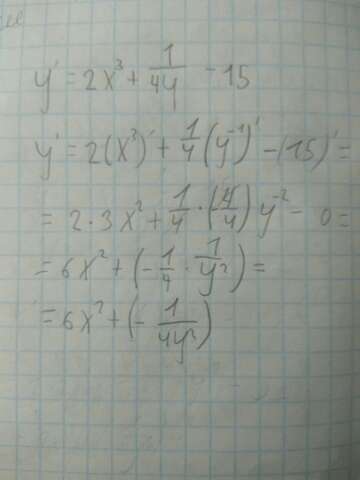 y' = 2x³ + 1/4y - 15
y' = 2(x³)' + 1/4 (y⁻¹)' - (15)' =
= 2 · 3x² + 1/4 · y⁻² - 0 =
= 6x² + (- 1/4 · 1/y²) =
= 6x² + (- 1/4y²)